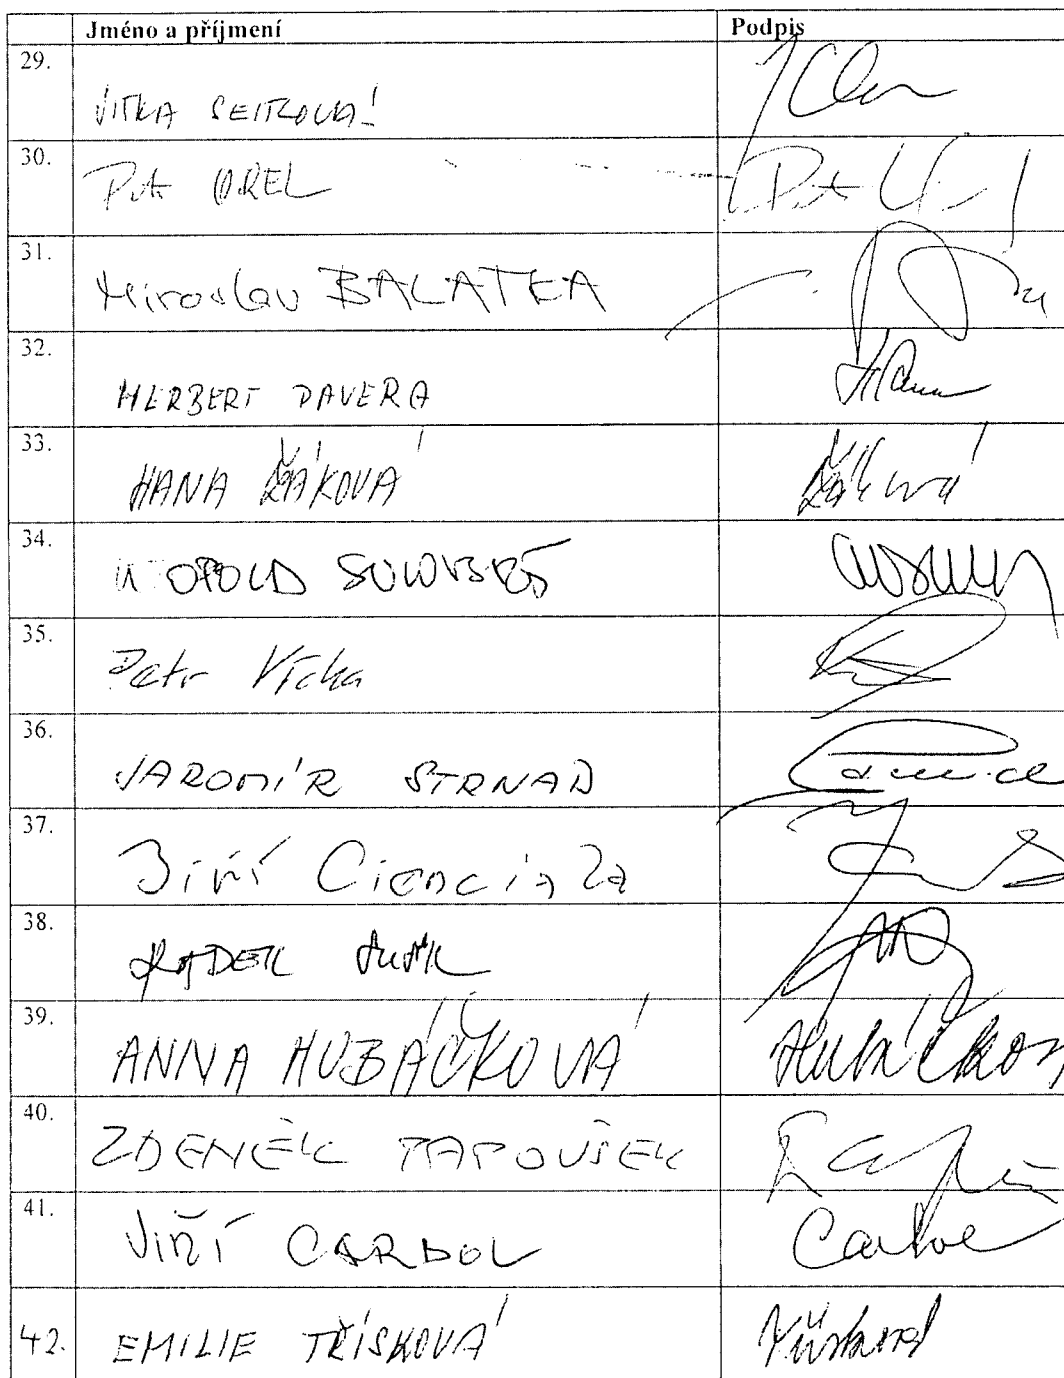 Jméno a příjmení Podpis
29. JITKA SEITLOVÁ
30. Petr OREL
31. Miroslav BALATKA
32. HERBERT PAVERA
33. HANA ŽÁKOVÁ Žáková
34. LEOPOLD SULOVSKÝ
35. Petr Vícha
36. JAROMÍR STRNAD
37. Jiří Cienciala
38. RADEK SUŠIL
39. ANNA HUBÁČKOVÁ Hubáčkov
40. ZDENĚK PAPOUŠEK
41. JIŘÍ CARBOL Carbol
42. EMILIE TŘÍSKOVÁ Třísková